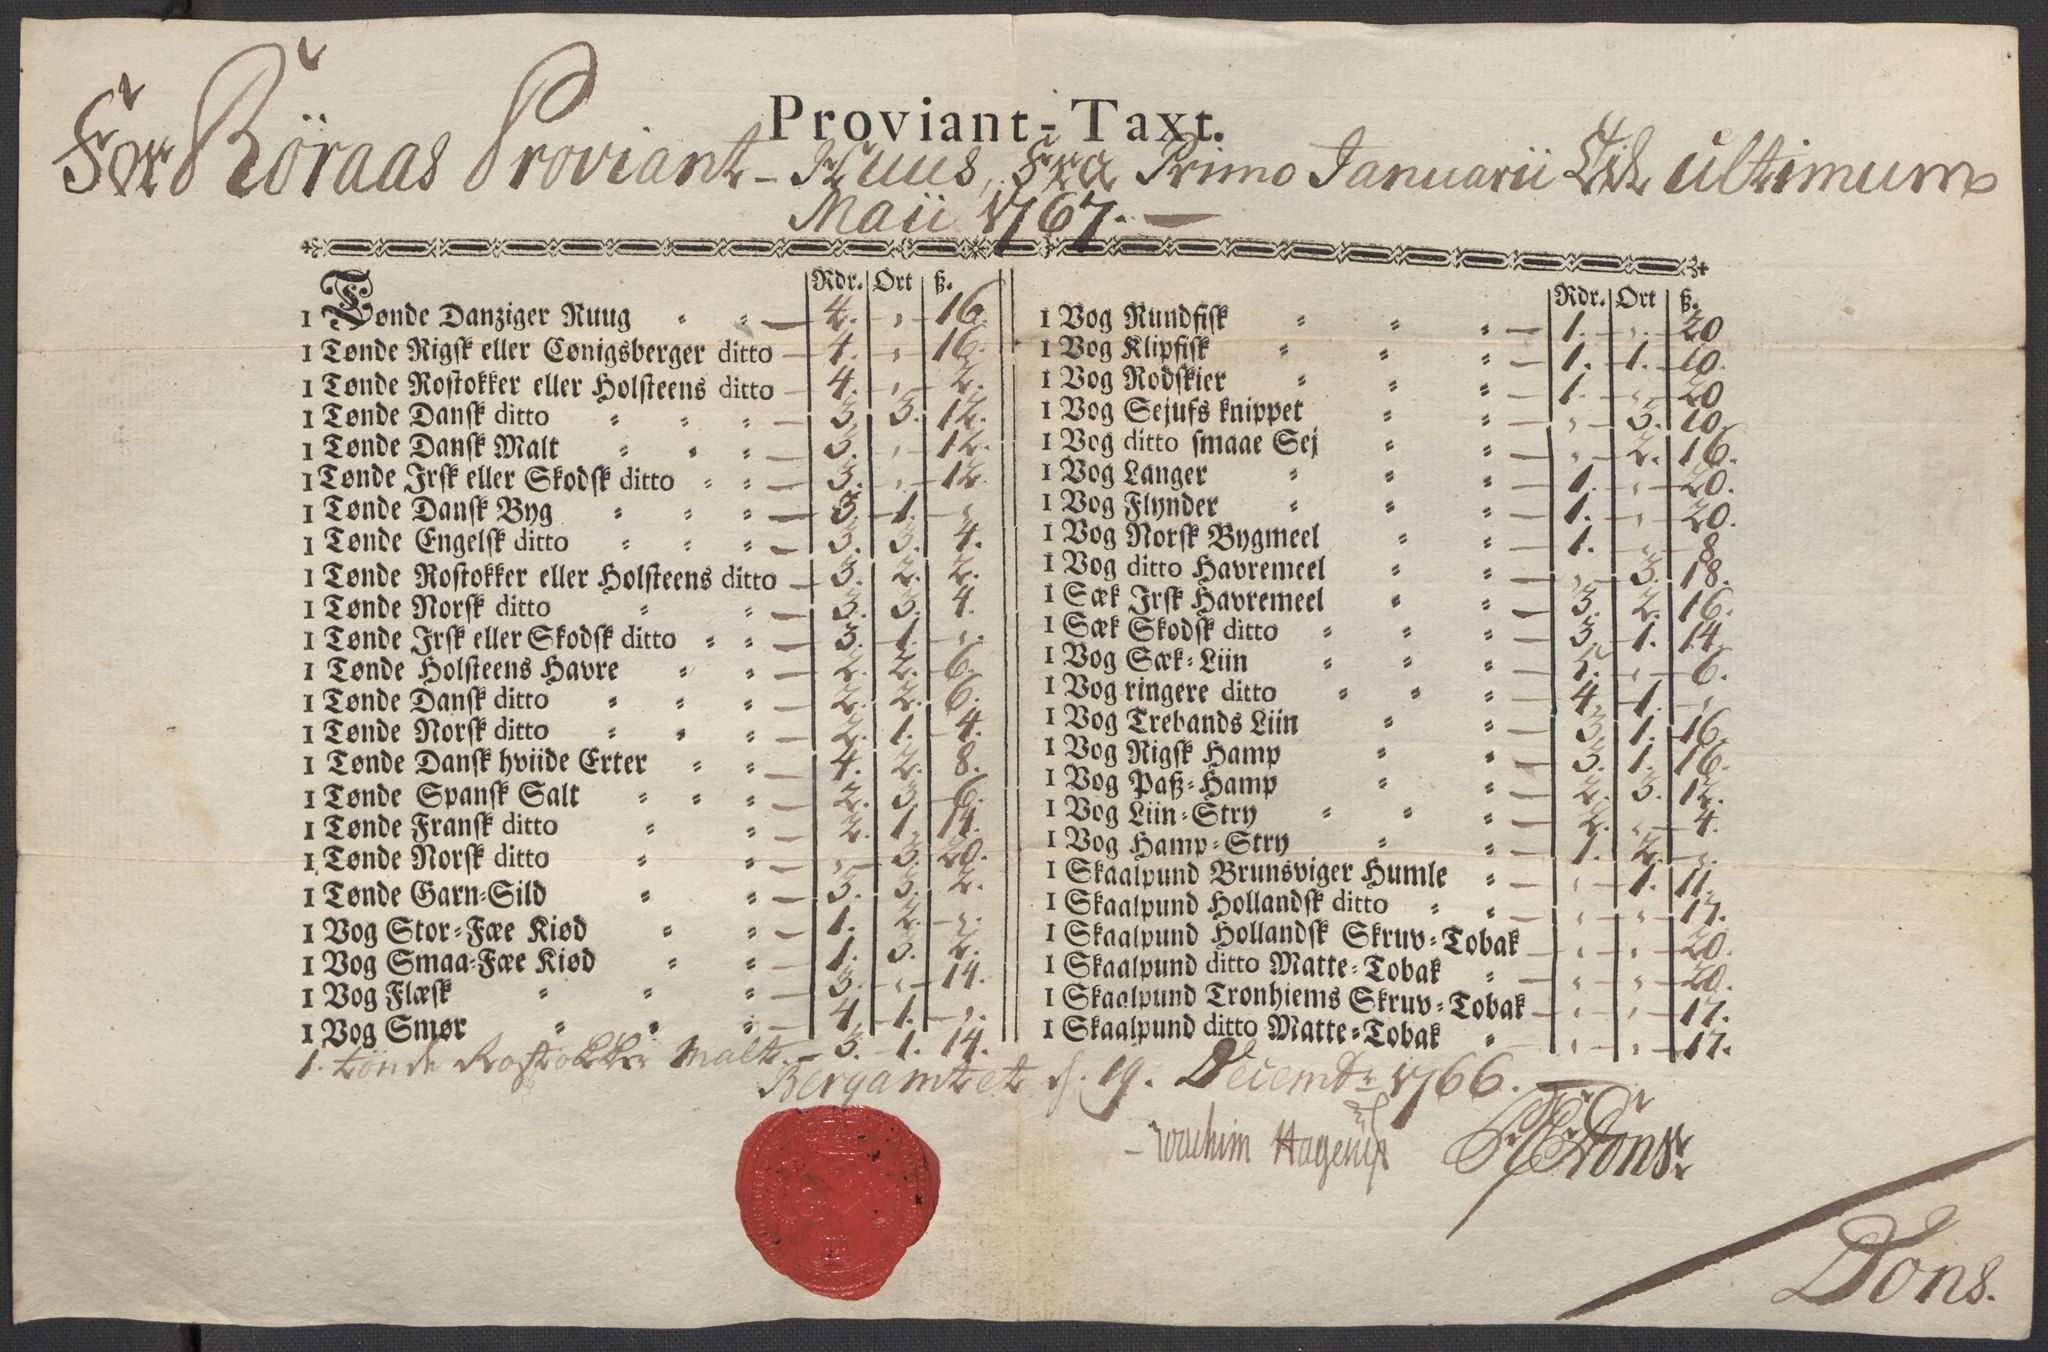 Proviant-Taxt.
For Röraas Proviant-Huus, Fra Primo Januarii Til ultimum
Maii 1767.
Rdr. Ort ß.
1 Tønde Danziger Ruug 4. " 16.
1 Tønde Rigsk eller Cønigsberger ditto 4. " 16.
1 Tønde Rostokker eller Holsteens ditto 4. " 2.
1 Tønde Dansk ditto 3 3. 12.
1 Tønde Dansk Malt 3. " 12.
1 Tønde Irsk eller Skodsk ditto 3. " 12.
1 Tønde Dansk Byg 3 1. "
1 Tønde Engelsk ditto 3. 3. 4.
1 Tønde Rostokker eller Holsteens ditto 3. 2. 2.
1 Tønde Norsk ditto 3. 3. 4.
1 Tønde Irsk eller Skodsk ditto 3. 1. "
1 Tønde Holsteens Havre 2. 2. 6.
1 Tønde Dansk ditto 2. 2. 6.
1 Tønde Norsk ditto 2. 1. 4.
1 Tønde Dansk hviide Erter 4. 2. 8.
1 Tønde Spansk Salt 2. 3. 6.
1 Tønde Fransk ditto 2. 1. 14.
1 Tønde Norsk ditto " 3. 20.
1 Tønde Garn-Sild 3. 3. 2.
1 Vog Stor-Fæe Kiød 1. 2. "
1 Vog Smaa-Fæe Kiød 1. 3. 2.
1 Vog Flæsk 3. " 14.
1 Vog Smør 4. 1. "
1. tönde Rostokker Malt 3. 1. 14.
Rdr. Ort ß.
1 Vog Rundfisk 1. " 20
1 Vog Klipfisk 1. 1. 10.
1 Vog Rodskier 1. " 20
1 Vog Sejufs knippet " 3. 10.
1 Vog ditto smaae Sej " 2. 16.
1 Vog Langer 1. " 20.
1 Vog Flynder 1. " 20.
1 Vog Norsk Bygmeel 1. " 8.
1 Vog ditto Havremeel " 3. 18.
1 Sæk Irsk Havremeel 3. 2. 16.
1 Sæk Skodsk ditto 3. 1. 14.
1 Vog Sæk-Liin " 6.
1 Vog ringere ditto 4. 1. "
1 Vog Trebands Liin 3. 1. 16.
1 Vog Rigsk Hamp 3. 1. 16.
1 Vog Paß-Hamp 2. 3. 12.
1 Vog Liin-Stry 2. " 4.
1 Vog Hamp-Stry 1. 2. "
1 Skaalpund Brunsviger Humle " 1. 11.
1 Skaalpund Hollandsk ditto " " 17.
1 Skaalpund Hollandsk Skruv-Tobak " " 20.
1 Skaalpund ditto Matte-Tobak " " 20.
1 Skaalpund Tronhiems Skruv-Tobak " " 17.
1 Skaalpund ditto Matte-Tobak " " 17.
Bergamtet d. 19. Decembr 1766.
Joachim Hagerup Dons
Dons.